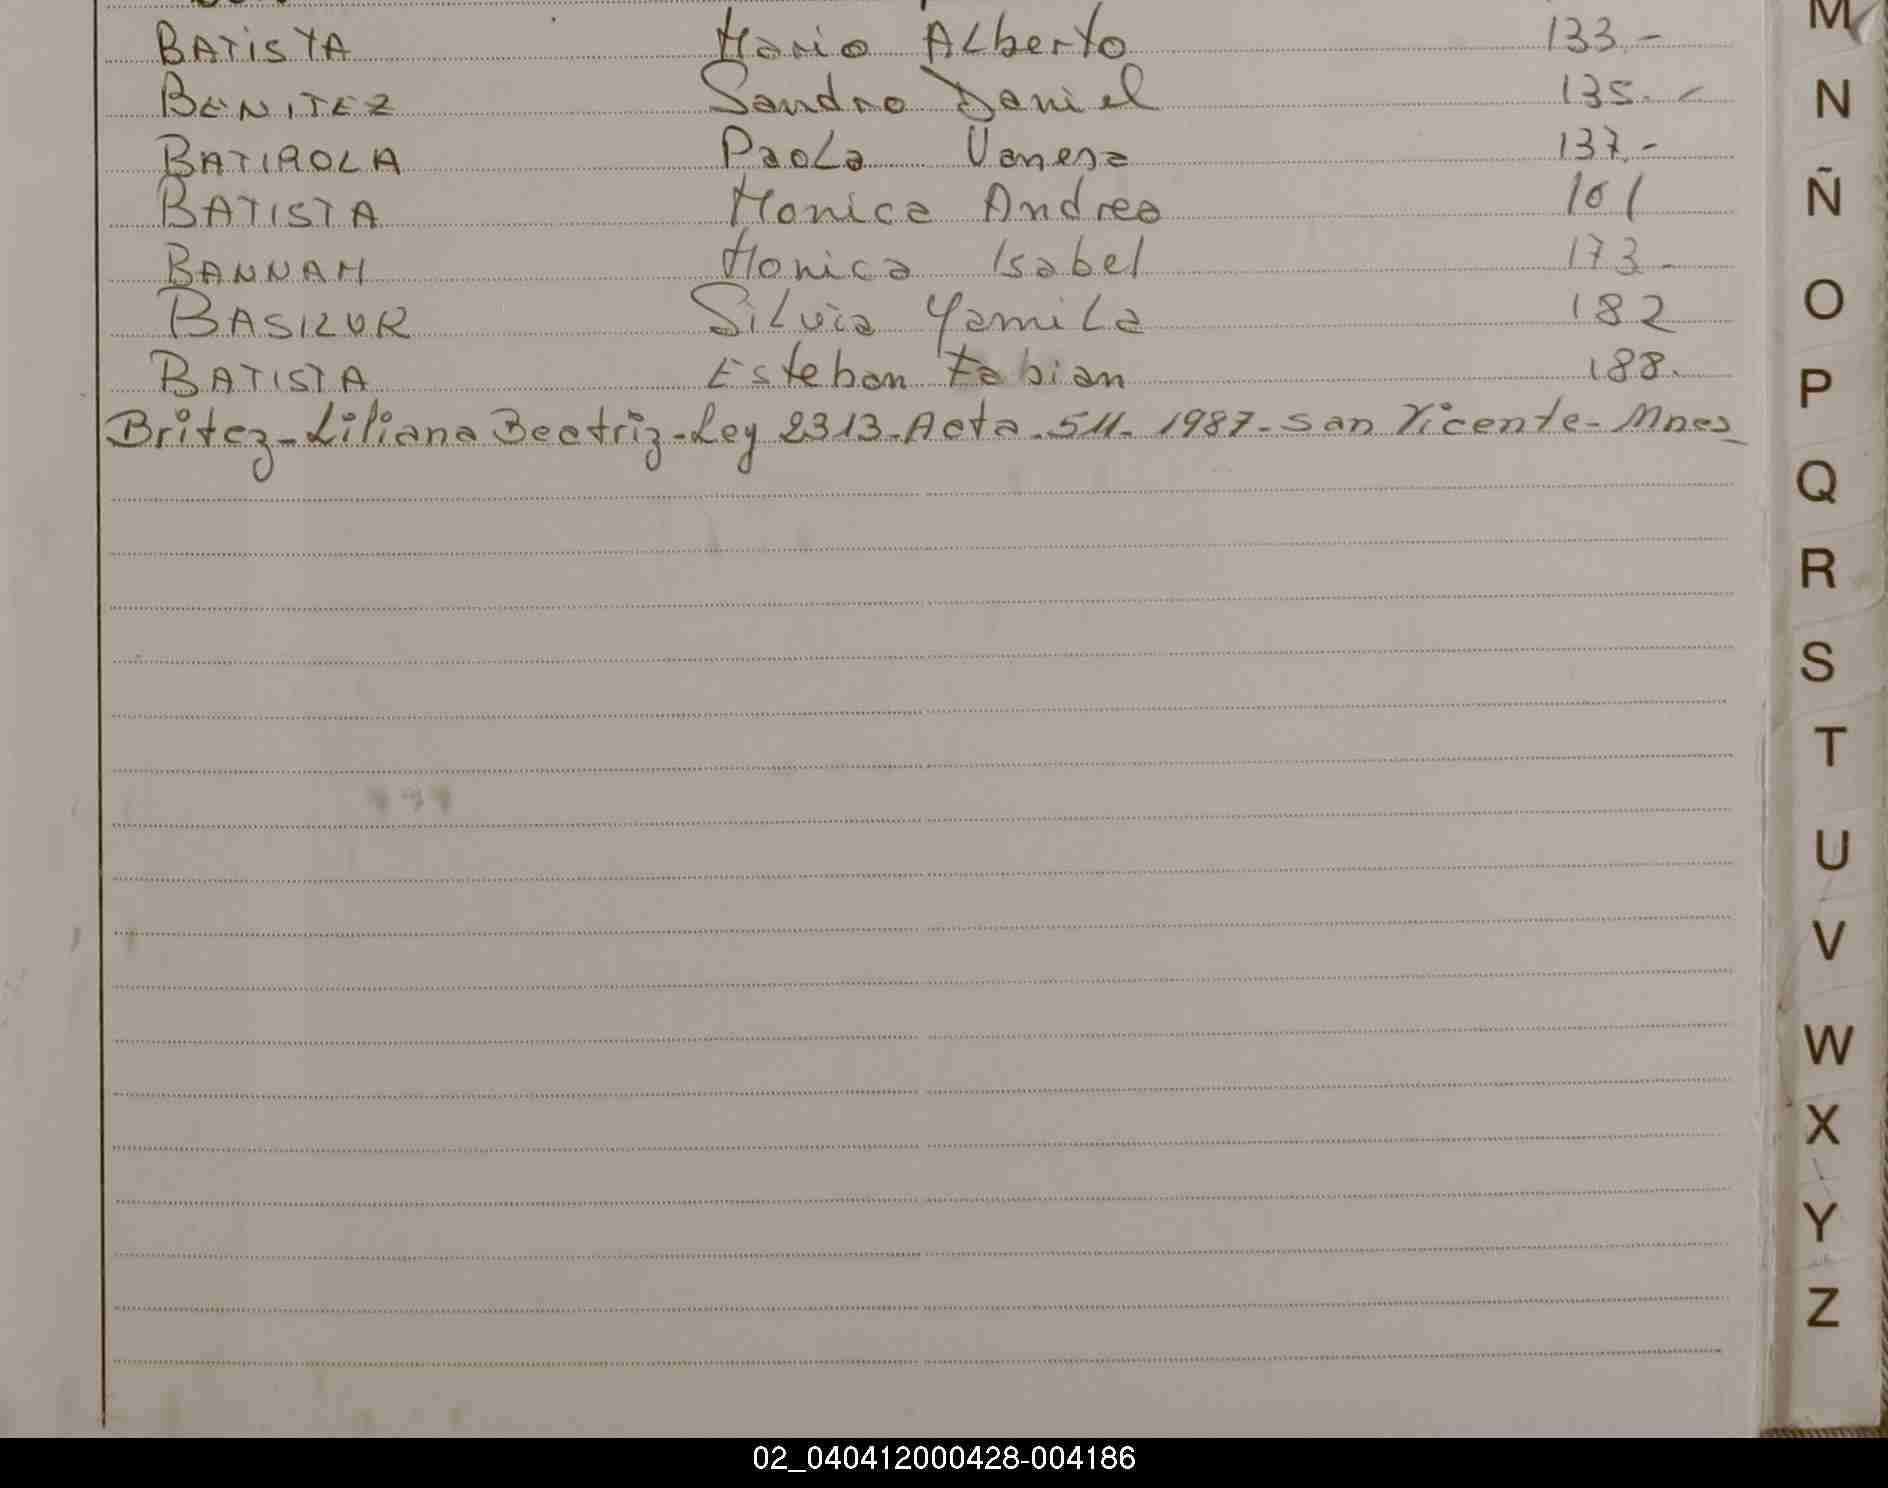 BATISTA Mario Alberto 133.-
BENITEZ Sandro Daniel 135.-
BATIROLA Paola Vanesa 137.-
BATISTA Monica Andrea 161
BANNAM Monica Isabel 173-
BASILUR Silvia Yamila 182
BATISTA Esteban Fabian 188.
Britez-Liliana Beatriz-Ley 2313-Acta-511-1987-San Vicente-Mnes
M
N
Ñ
O
P
Q
R
S
T
U
V
W
X
Y
Z
02_040412000428-004186